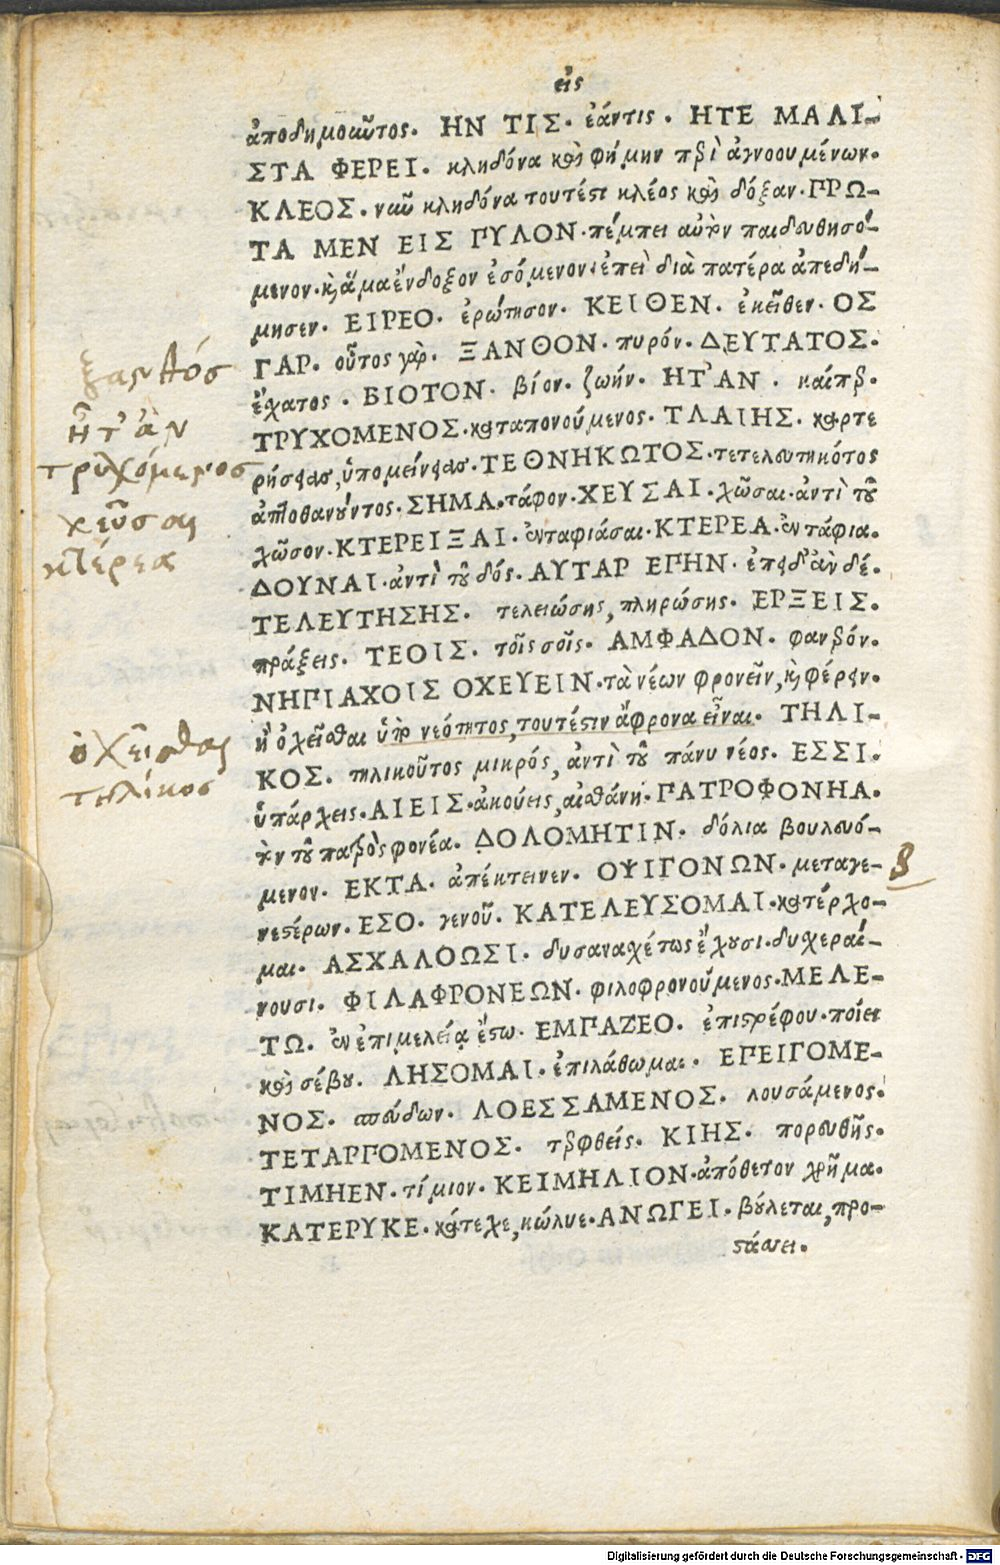 εἰς
ἀποδημοῦντος. ΗΝ ΤΙΣ. ἐάντις. ΗΤΕ ΜΑΛΙ-
ΣΤΑ ΦΕΡΕΙ. κληδόνα καὶ φήμην περὶ ἀγνοουμένων.
ΚΛΕΟΣ. νῦν κληδόνα τουτέστι κλέος καὶ δόξαν. ΠΡΩ-
ΤΑ ΜΕΝ ΕΙΣ ΠΥΛΟΝ. πέμπει αὐτὸν παιδευθησό-
μενον. καὶ ἅμα ἔνδοξον ἐσόμενον. ἐπεὶ διὰ πατέρα ἀπεδή-
μησεν. ΕΙΡΕΟ. ἐρώτησον. ΚΕΙΘΕΝ. ἐκεῖθεν. ΟΣ
ΓΑΡ. οὗτος γὰρ. ΞΑΝΘΟΝ. πυρόν. ΔΕΥΤΑΤΟΣ.
ἔσχατος. ΒΙΟΤΟΝ. βίον. ζωήν. ΗΤ' ΑΝ. καίπερ.
ΤΡΥΧΟΜΕΝΟΣ. καταπονούμενος. ΤΛΑΙΗΣ. καρτε
ρήσειας, ὑπομείνειας. ΤΕΘΝΗΚΩΤΟΣ. τετελευτηκότος
ἀποθανόντος. ΣΗΜΑ. τάφον. ΧΕΥΣΑΙ. χῶσαι. ἀντὶ τοῦ
χῶσον. ΚΤΕΡΕΙΞΑΙ. ἐνταφιάσαι. ΚΤΕΡΕΑ. ἐντάφια.
ΔΟΥΝΑΙ. ἀντὶ τοῦ δός. ΑΥΤΑΡ ΕΠΗΝ. ἐπειδ' ἂν δέ.
ΤΕΛΕΥΤΗΣΗΣ. τελειώσης, πληρώσης. ΕΡΞΕΙΣ.
πράξεις. ΤΕΟΙΣ. τοῖς σοῖς. ΑΜΦΑΔΟΝ. φανερόν.
ΝΗΠΙΑΧΟΙΣ ΟΧΕΥΕΙΝ. τὰ νέων φρονεῖν, καὶ φέρειν.
ἢ ὀχεῖσθαι ὑπὸ νεότητος, τουτέστιν ἄφρονα εἶναι. ΤΗΛΙ-
ΚΟΣ. τηλικοῦτος μικρός, ἀντὶ τοῦ πάνυ νέος. ΕΣΣΙ.
ὑπάρχεις. ΑΙΕΙΣ. ἀκούεις, αἰσθάνη. ΠΑΤΡΟΦΟΝΗΑ.
τὸν τοῦ πατρὸς φονέα. ΔΟΛΟΜΗΤΙΝ. δόλια βουλευό-
μενον. ΕΚΤΑ. ἀπέκτεινεν. ΟΨΙΓΟΝΩΝ. μεταγε-
νεστέρων. ΕΣΟ. γενοῦ. ΚΑΤΕΛΕΥΣΟΜΑΙ. κατέρχο-
μαι. ΑΣΧΑΛΟΩΣΙ. δυσαναχέτως ἔχουσι. δυχεραί-
νουσι. ΦΙΛΑΦΡΟΝΕΩΝ. φιλοφρονούμενος. ΜΕΛΕ-
ΤΩ. ἐν ἐπιμελείᾳ ἔστω. ΕΜΠΑΖΕΟ. ἐπιστρέφου. ποίει
καὶ σέβου. ΛΗΣΟΜΑΙ. ἐπιλάθωμαι. ΕΠΕΙΓΟΜΕ-
ΝΟΣ. σπεύδων. ΛΟΕΣΣΑΜΕΝΟΣ. λουσάμενος.
ΤΕΤΑΡΠΟΜΕΝΟΣ. τερφθείς. ΚΙΗΣ. πορευθῇς.
ΤΙΜΗΕΝ. τίμιον. ΚΕΙΜΗΛΙΟΝ. ἀπόθετον χρῆμα.
ΚΑΤΕΡΥΚΕ. κάτεχε, κώλυε. ΑΝΩΓΕΙ. βούλεται, προ-
στάσσει.
ξανθός
ἤτ' ἂν
τρυχόμενος
χεῦσαι
κτέρεα
ὀχεῖσθαι
τηλίκος
Digitalisierung gefördert durch die Deutsche Forschungsgemeinschaft - DFG